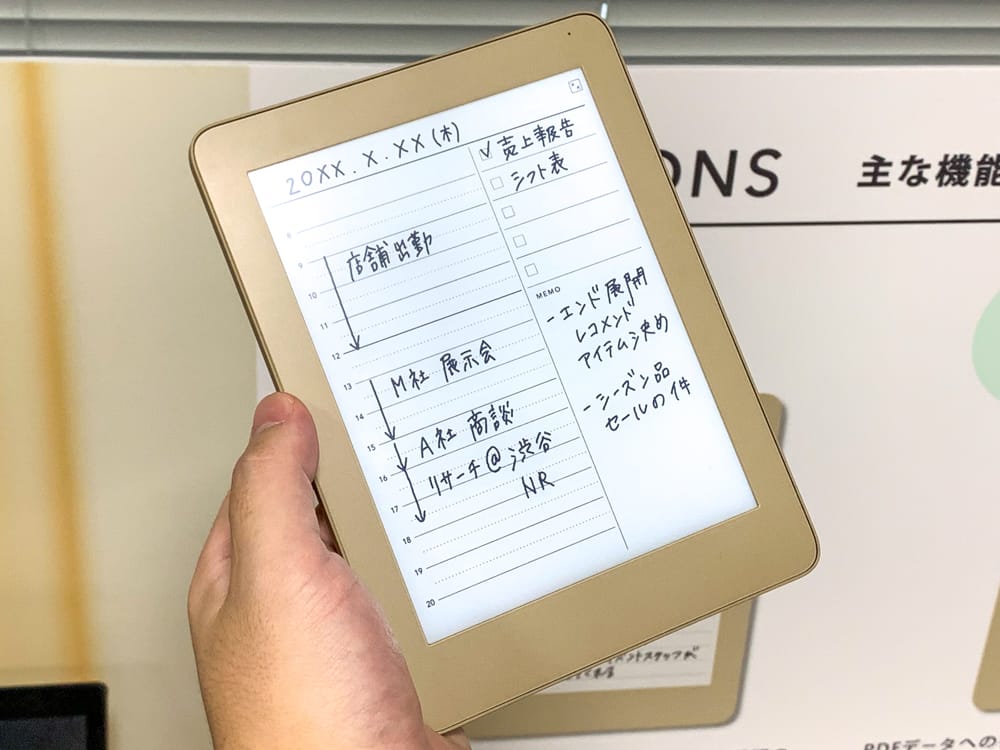 20XX.X.XX(木)
8
9
店舗出勤
10
11
12
13
M社 展示会
14
15
A社 商談
16
リサーチ@渋谷
17
NR
18
19
20
売上報告
シフト表
MEMO
-エンド展開
レコメンド
アイテム決め
-シーズン品
セールの件
ONS
主な機能
PDFデータへの